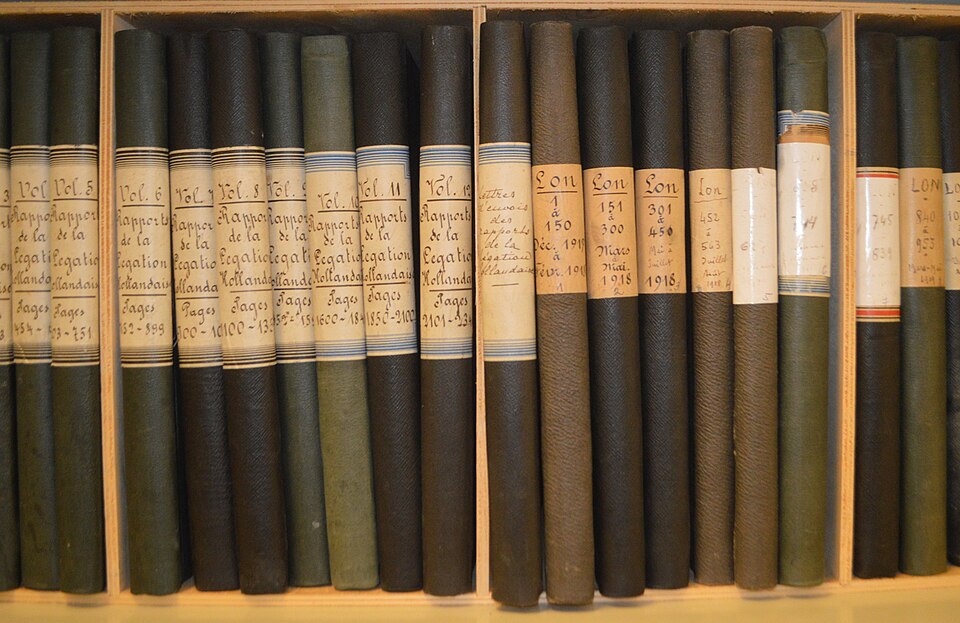 3
Vol.
Rapports
de la
Legation
Hollandais
Pages
454 -
Vol. 5
Rapports
de la
Legation
Hollandais
Pages
3-731
Vol. 6
Rapports
de la
Legation
Hollandais
Pages
32-899
Vol. 7
Rapports
de la
Legatio
Hollanda
Pages
900-10
Vol. 8
Rapports
de la
Legatio
Hollandais
Pages
1100-135
Vol. 9
Rapports
de la
Legatio
Hollandais
Pages
Vol. 10
Rapports
de la
Legatio
Hollanda
Pages
1600-184
Vol. 11
Rapports
de la
Legatio
Hollandais
Pages
1850-2100
Vol. 12
Rapports
de la
Legatio
Hollandais
Pages
2101-234
Lettres
d'envois
des
rapports
de la
Legation
Hollandaise
Lon
1
à
150
Déc. 1917
à
Févr. 1918
1
Lon
151
à
300
Mars
à
Mai
1918
2
Lon
301
à
450
Mai à
Juillet
1918
3
Lon
452
à
543
Juillet
1918
4
5
745
LON
840
à
955
LO